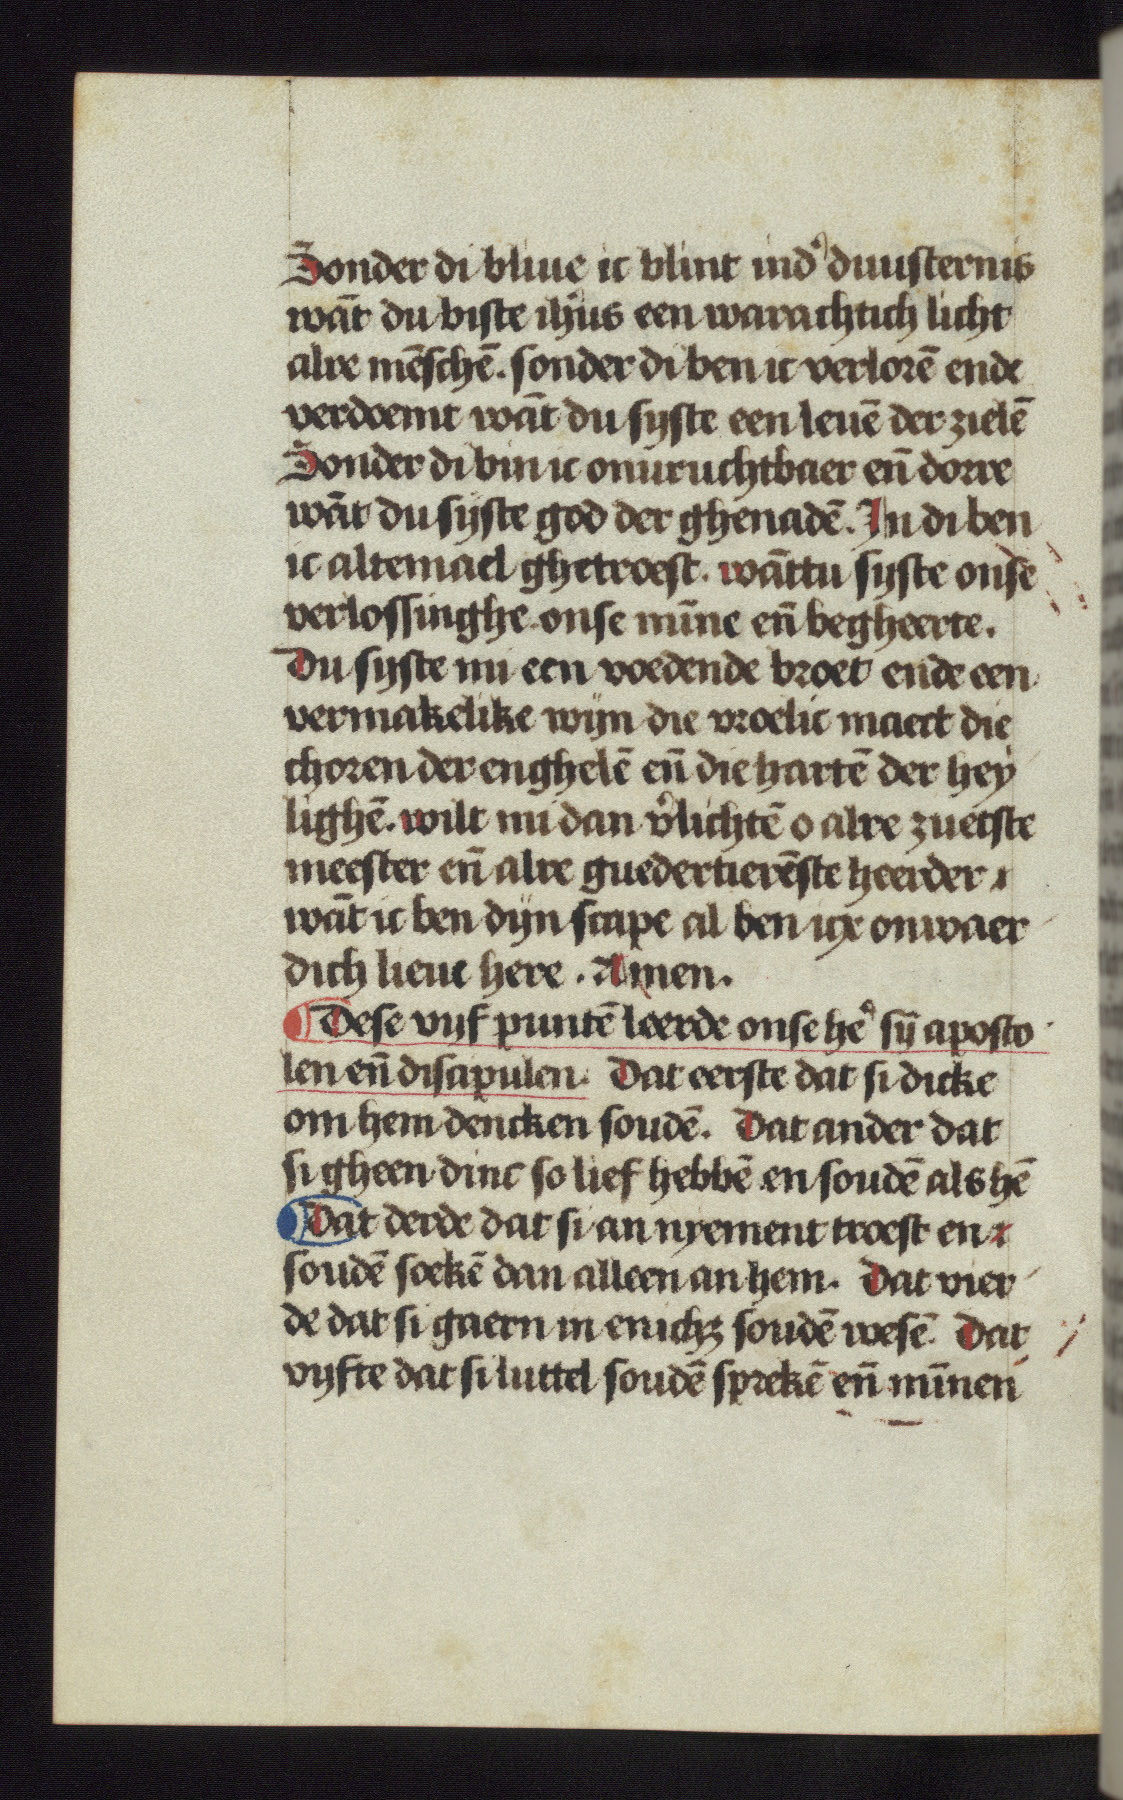 Sonder di bliue ic blint ind' duusternis
wāt du biste ihūs een warachtich licht
alre mēschē. sonder di ben ic verlorē ende
verdoemt wāt du syste een leuē der zielē
Sonder di bin ic onuruchtbaer eñ dorre
wāt du syste god der ghenadē. In di ben
ic altemael ghetroest. wāttu syste onse
verlossinghe onse mīne eñ begheerte.
Du syste mi een voedende broet ende een
vermakelike wijn die vroelic maect die
choren der enghelē eñ die hartē der hey
lighē. wilt mi dan v'lichtē o alre zuetste
meester eñ alre guedertierēste heerder
wāt ic ben dijn scape al ben icx onwaer
dich lieue here. Amen.
Dese vijf puntē leerde onse he' sȳ aposto
len eñ discipulen. Dat eerste dat si dicke
om hem dencken soudē. Dat ander dat
si gheen dinc so lief hebbē en soudē als hē
Dat derde dat si an nyement troest en
soudē soekē dan alleen an hem. Dat vier
de dat si gaern in enicheʒ soudē wesē. Dat
vijfte dat si luttel soudē sprekē eñ mīnen